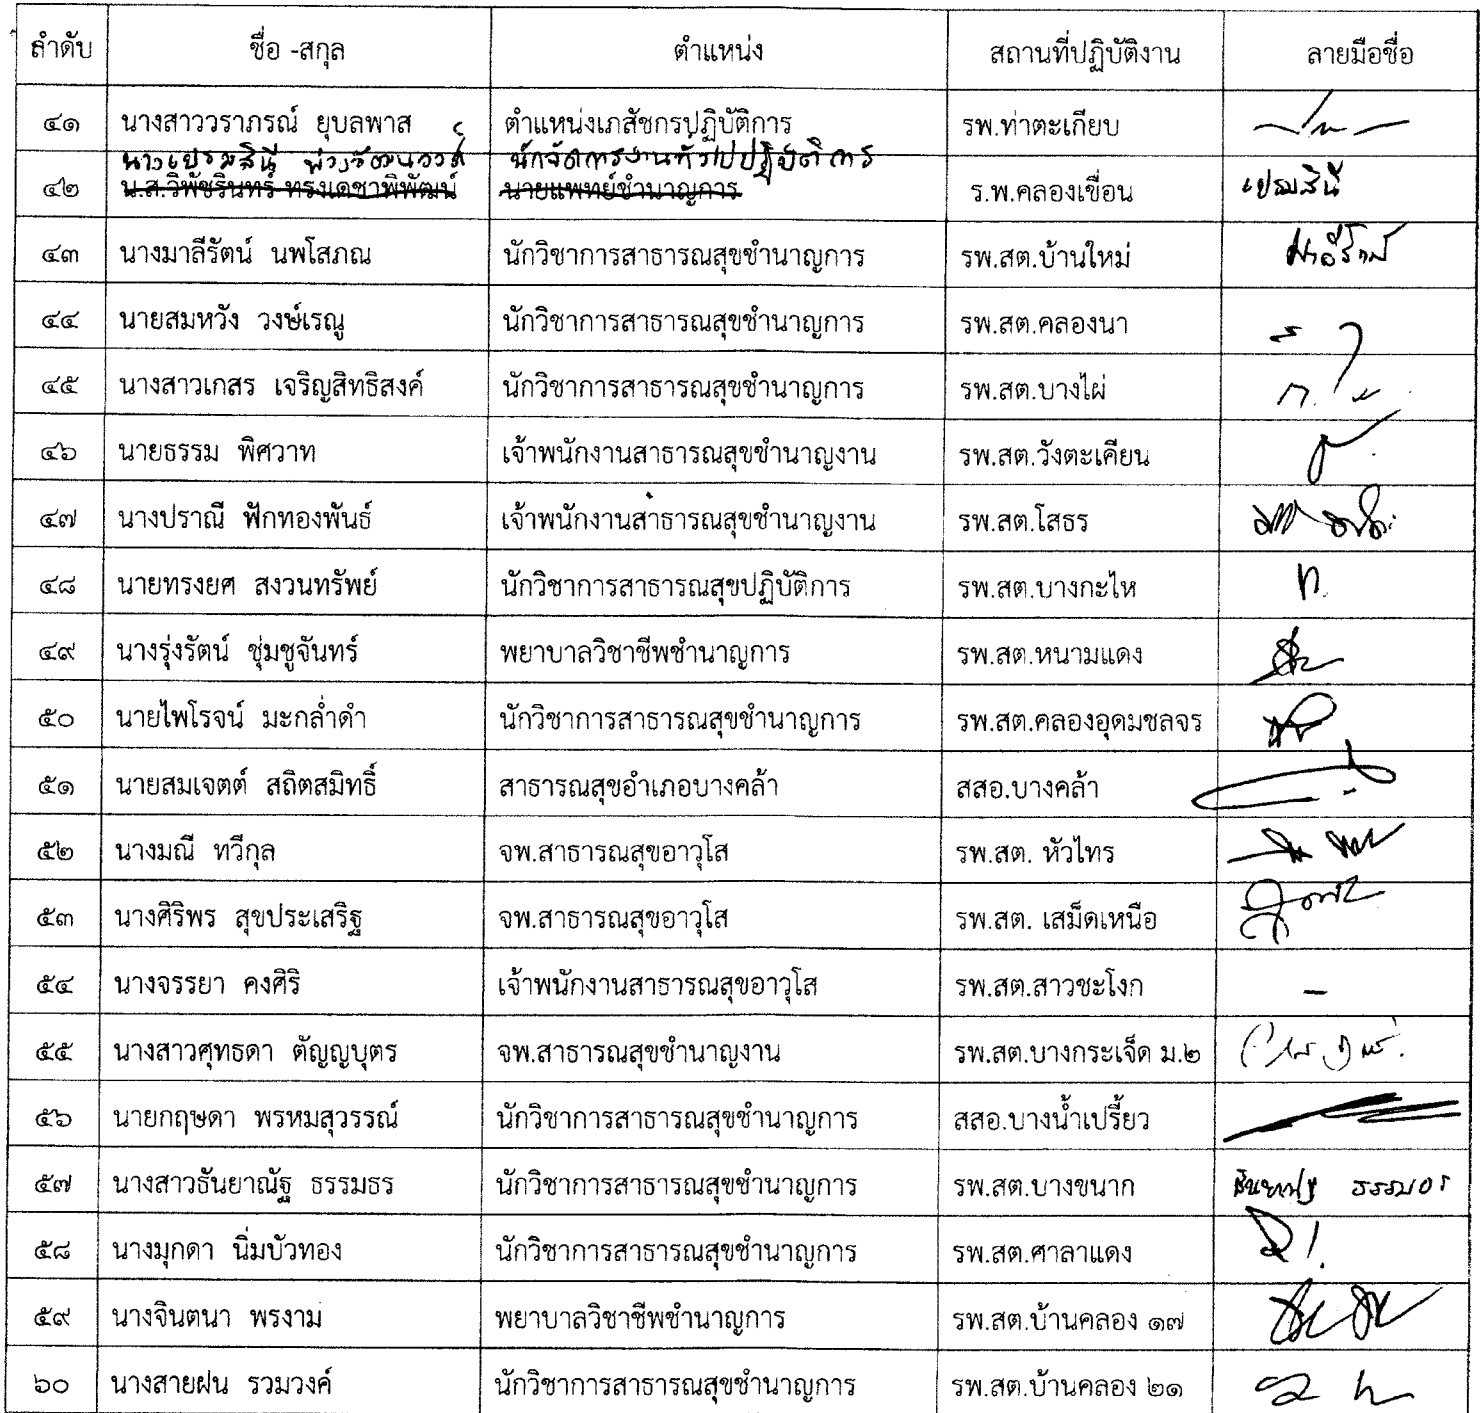 ลำดับ ชื่อ -สกุล ตำแหน่ง สถานที่ปฏิบัติงาน ลายมือชื่อ
๔๑ นางสาววราภรณ์ ยุบลพาส ตำแหน่งเภสัชกรปฏิบัติการ รพ.ท่าตะเกียบ
นางเปรมสินี นักจัดการงานทั่วไปปฏิบัติการ
๔๒ น.ส.วิพัชรินทร์ ทรงเดชาพิพัฒน์ นายแพทย์ชำนาญการ ร.พ.คลองเขื่อน เปรมสินี
๔๓ นางมาลีรัตน์ นพโสภณ นักวิชาการสาธารณสุขชำนาญการ รพ.สต.บ้านใหม่ มาลีรัตน์
๔๔ นายสมหวัง วงษ์เรณู นักวิชาการสาธารณสุขชำนาญการ รพ.สต.คลองนา
๔๕ นางสาวเกสร เจริญสิทธิสงค์ นักวิชาการสาธารณสุขชำนาญการ รพ.สต.บางไผ่
๔๖ นายธรรม พิศวาท เจ้าพนักงานสาธารณสุขชำนาญงาน รพ.สต.วังตะเคียน
๔๗ นางปราณี ฟักทองพันธ์ เจ้าพนักงานสาธารณสุขชำนาญงาน รพ.สต.โสธร
๔๘ นายทรงยศ สงวนทรัพย์ นักวิชาการสาธารณสุขปฏิบัติการ รพ.สต.บางกะไห
๔๙ นางรุ่งรัตน์ ชุ่มชูจันทร์ พยาบาลวิชาชีพชำนาญการ รพ.สต.หนามแดง
๕๐ นายไพโรจน์ มะกล่ำดำ นักวิชาการสาธารณสุขชำนาญการ รพ.สต.คลองอุดมชลจร
๕๑ นายสมเจตต์ สถิตสมิทธิ์ สาธารณสุขอำเภอบางคล้า สสอ.บางคล้า
๕๒ นางมณี ทวีกุล จพ.สาธารณสุขอาวุโส รพ.สต. หัวไทร
๕๓ นางศิริพร สุขประเสริฐ จพ.สาธารณสุขอาวุโส รพ.สต. เสม็ดเหนือ
๕๔ นางจรรยา คงศิริ เจ้าพนักงานสาธารณสุขอาวุโส รพ.สต.สาวชะโงก -
๕๕ นางสาวศุทธดา ตัญญบุตร จพ.สาธารณสุขชำนาญงาน รพ.สต.บางกระเจ็ด ม.๒
๕๖ นายกฤษดา พรหมสุวรรณ์ นักวิชาการสาธารณสุขชำนาญการ สสอ.บางน้ำเปรี้ยว
๕๗ นางสาวธันยาณัฐ ธรรมธร นักวิชาการสาธารณสุขชำนาญการ รพ.สต.บางขนาก ธันยาณัฐ ธรรมธร
๕๘ นางมุกดา นิ่มบัวทอง นักวิชาการสาธารณสุขชำนาญการ รพ.สต.ศาลาแดง
๕๙ นางจินตนา พรงาม พยาบาลวิชาชีพชำนาญการ รพ.สต.บ้านคลอง ๑๗
๖๐ นางสายฝน รวมวงค์ นักวิชาการสาธารณสุขชำนาญการ รพ.สต.บ้านคลอง ๒๑